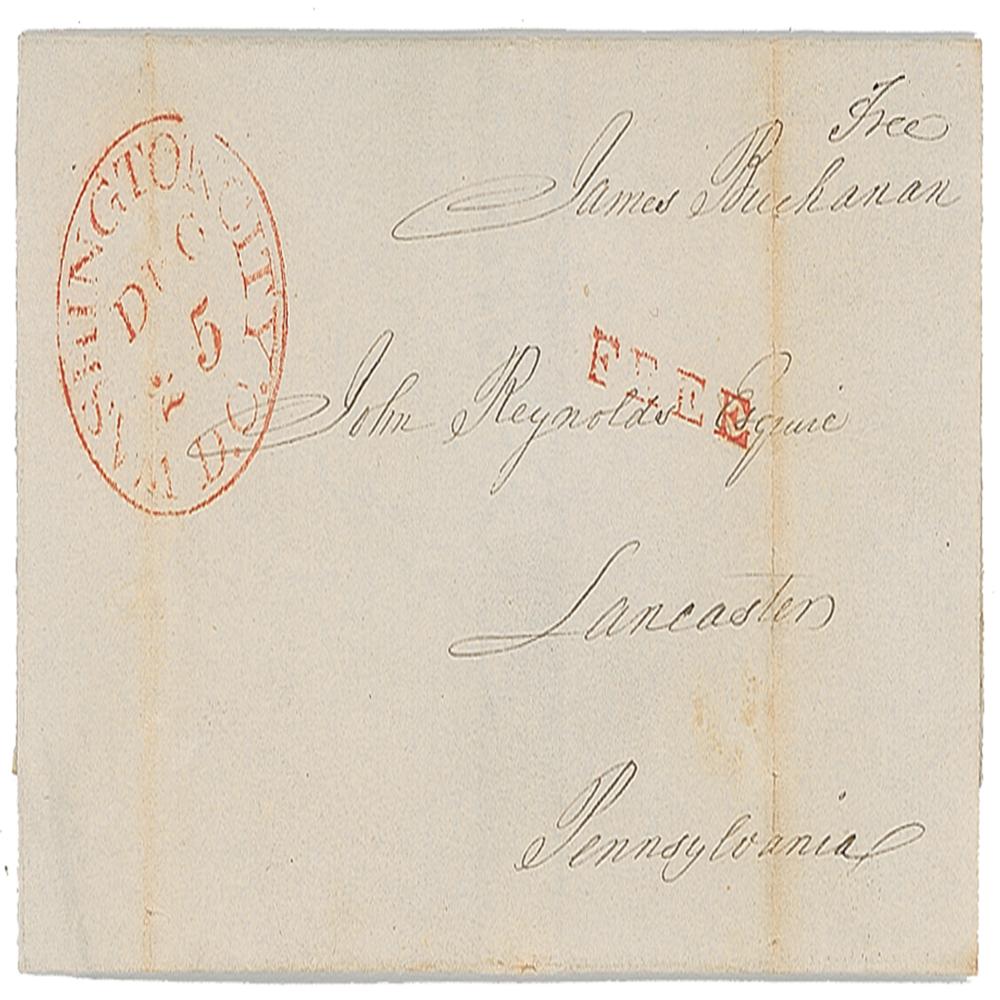 Free
James Buchanan
WASHINGTON CITY. D.C.
DEC
5
FREE
John Reynolds Esquire
Lancaster
Pennsylvania